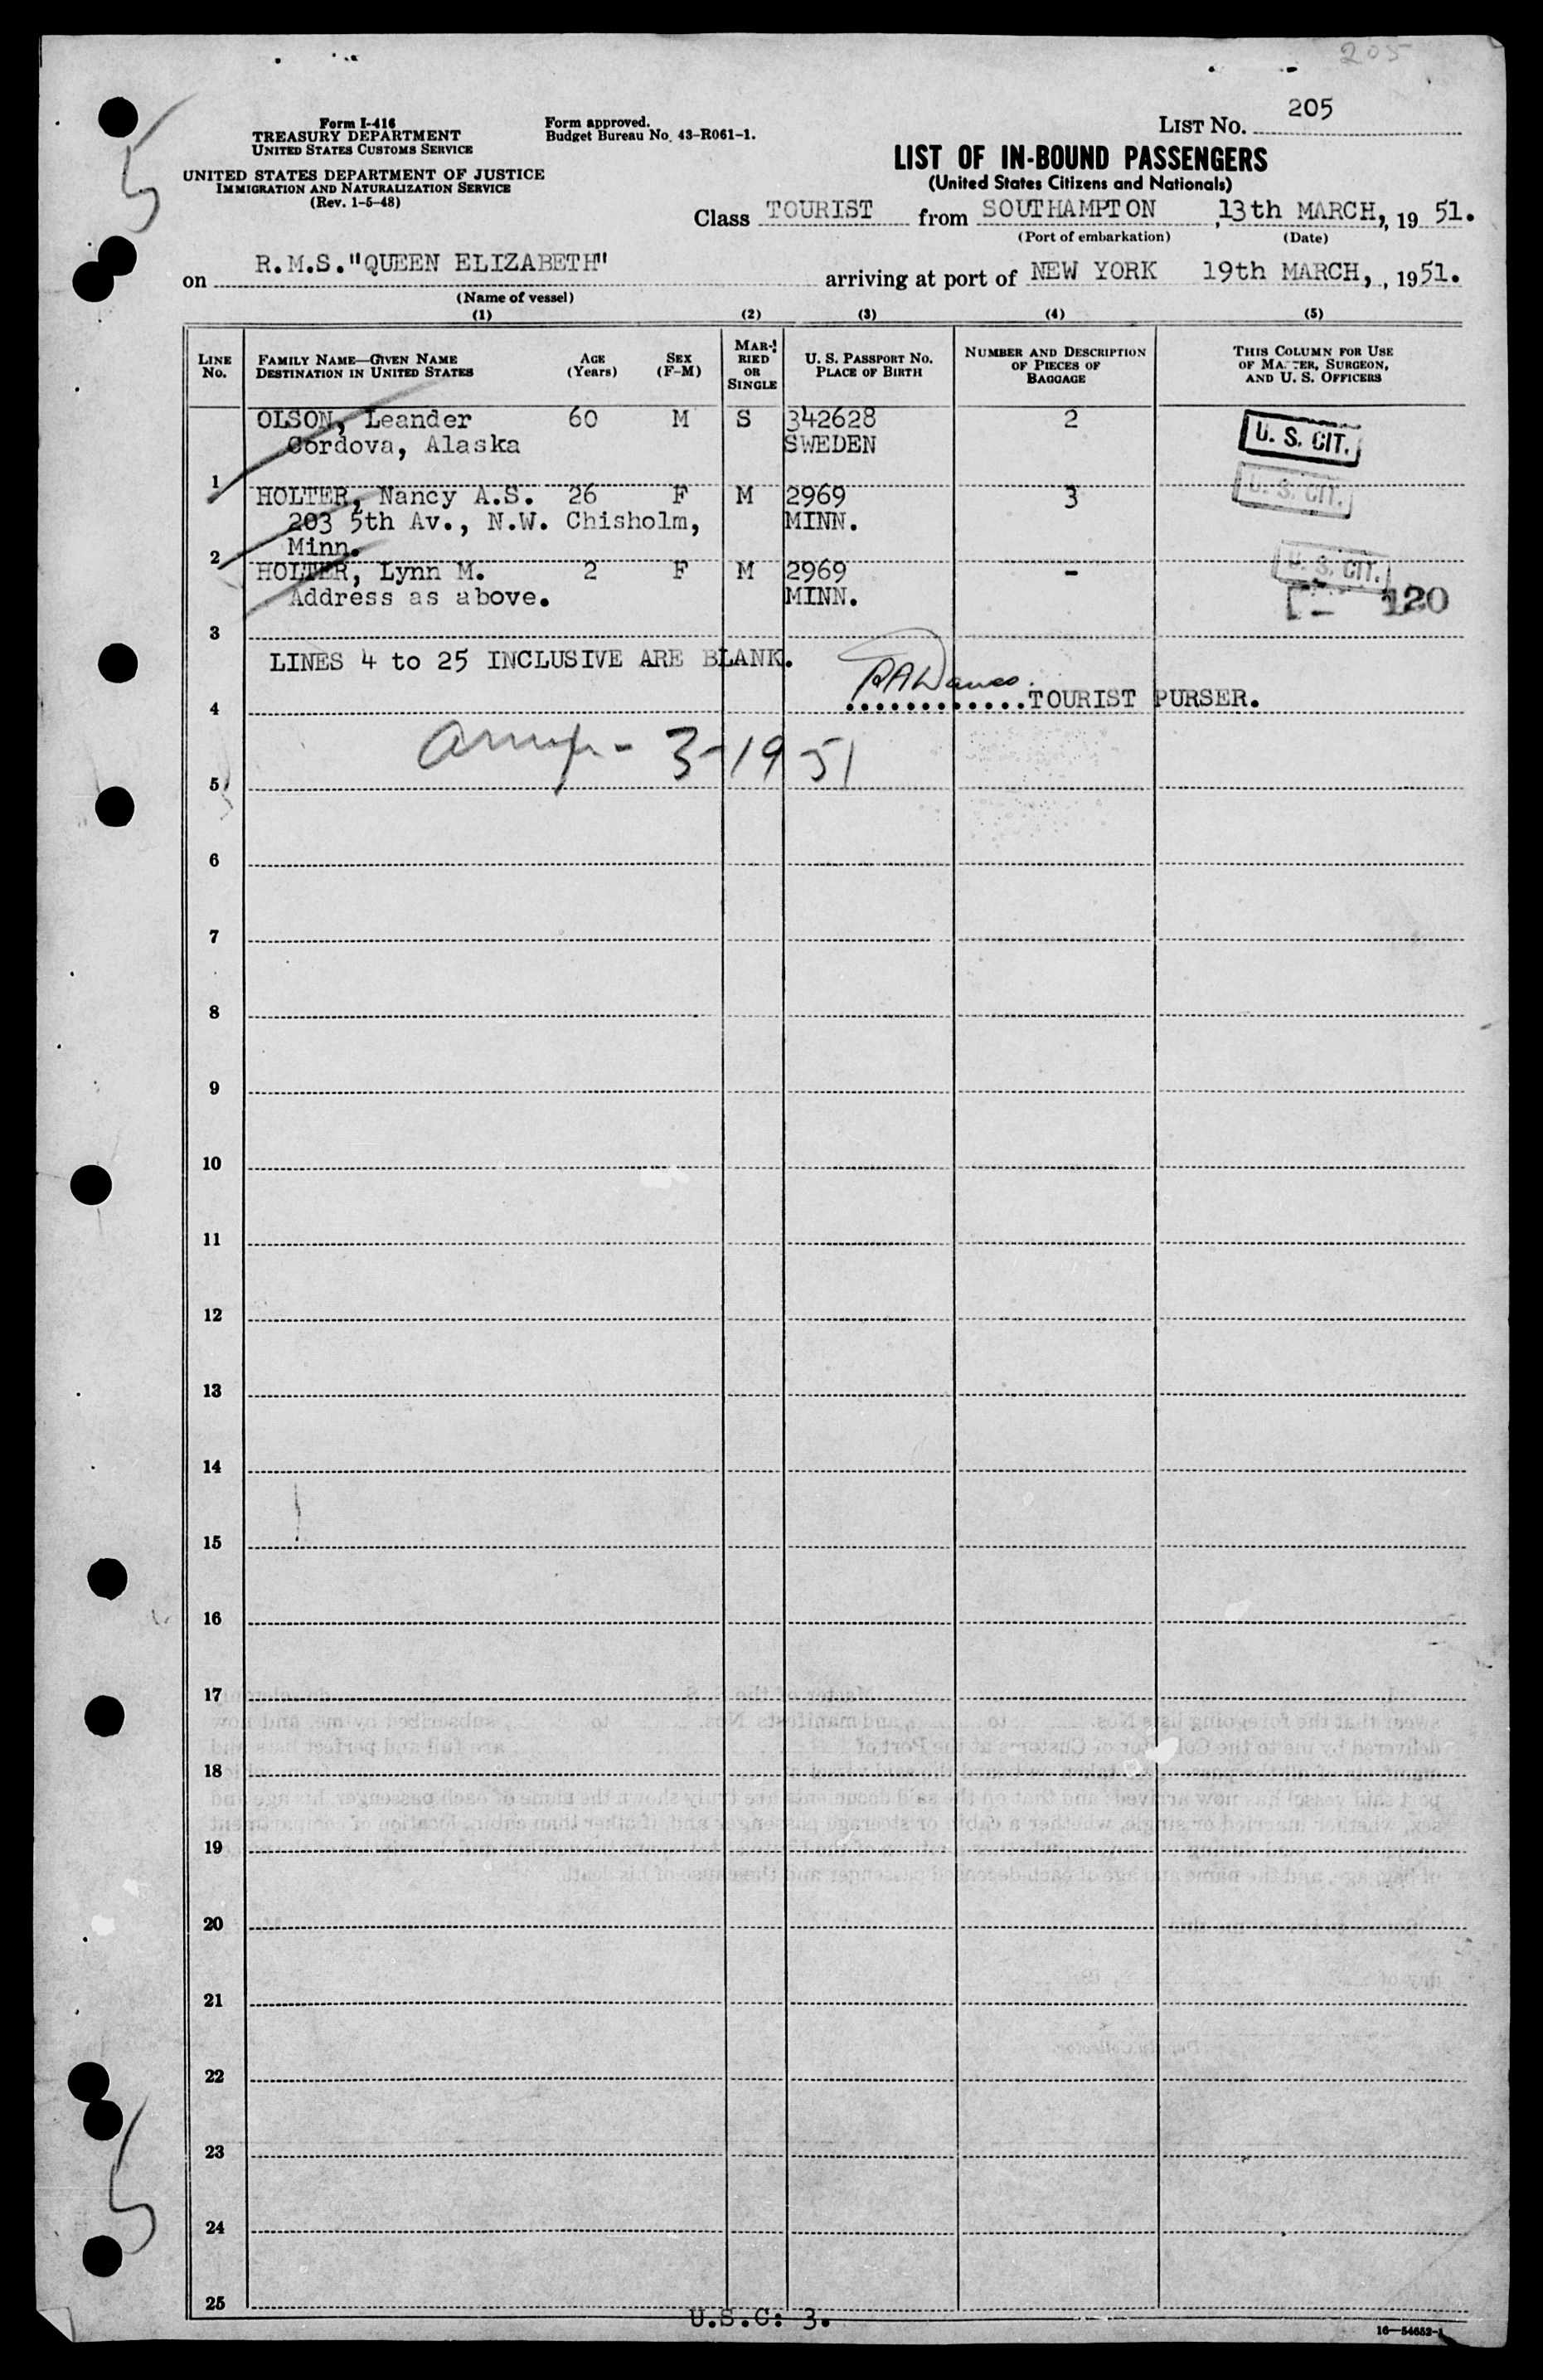 205
Form I-416
TREASURY DEPARTMENT
UNITED STATES CUSTOMS SERVICE
UNITED STATES DEPARTMENT OF JUSTICE
IMMIGRATION AND NATURALIZATION SERVICE
(Rev. 1-5-48)
Form approved.
Budget Bureau No. 43-R061-1.
LIST NO. 205
LIST OF IN-BOUND PASSENGERS
(United States Citizens and Nationals)
Class TOURIST from SOUTHAMPTON, 13th MARCH, 1951.
(Port of embarkation) (Date)
on R.M.S."QUEEN ELIZABETH" arriving at port of NEW YORK 19th MARCH,, 1951.
(Name of vessel)
(1) (2) (3) (4) (5)
LINE No. FAMILY NAME—GIVEN NAME DESTINATION IN UNITED STATES AGE (Years) SEX (F-M) MARRIED OR SINGLE U. S. PASSPORT NO. PLACE OF BIRTH NUMBER AND DESCRIPTION OF PIECES OF BAGGAGE THIS COLUMN FOR USE OF MASTER, SURGEON, AND U. S. OFFICERS
OLSON, Leander 60 M S 342628 2 U. S. CIT.
Cordova, Alaska SWEDEN
1
HOLTER, Nancy A.S. 26 F M 2969 3 U. S. CIT.
203 5th Av., N.W. Chisholm, MINN.
2 Minn.
HOLTER, Lynn M. 2 F M 2969 - U. S. CIT.
Address as above. MINN. 120
3
LINES 4 to 25 INCLUSIVE ARE BLANK.
4 ............TOURIST PURSER.
3-19 51
5
6
7
8
9
10
11
12
13
14
15
16
17
18
19
20
21
22
23
24
25
U.S.C: 3.
16—54652-1